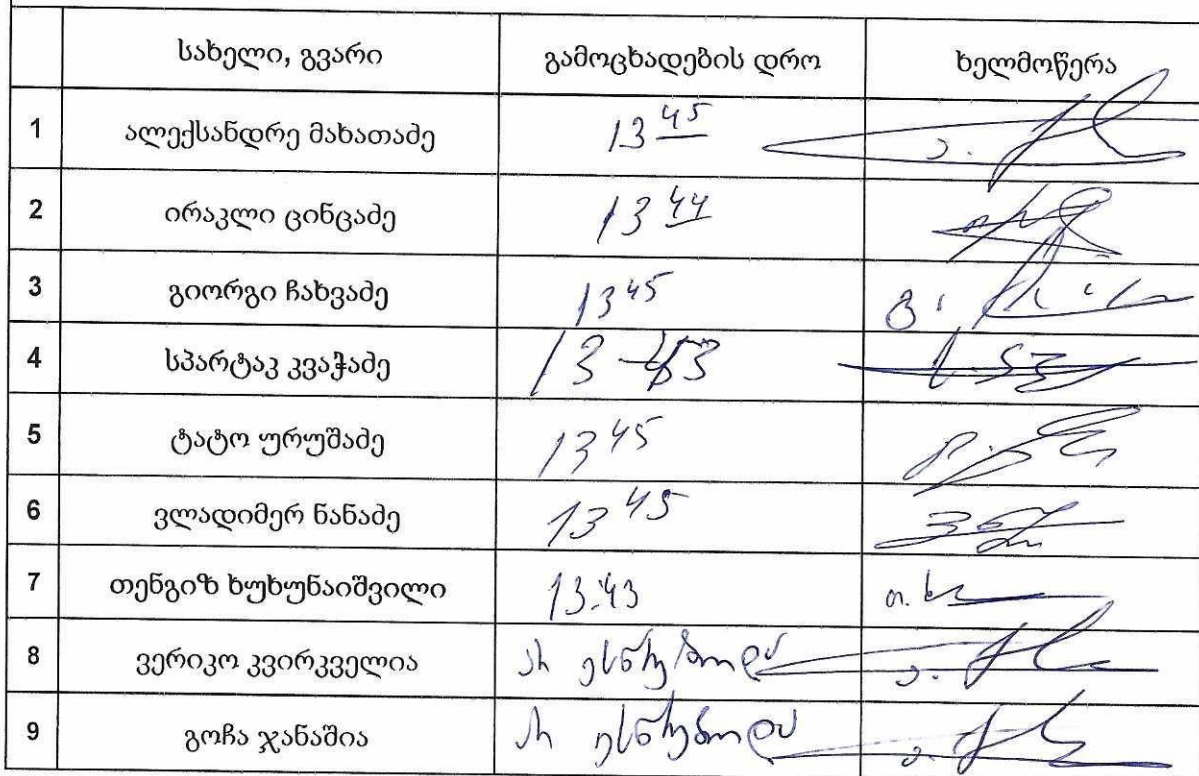 სახელი, გვარი გამოცხადების დრო ხელმოწერა
1 ალექსანდრე მახათაძე 13 45
2 ირაკლი ცინცაძე 13 44
3 გიორგი ჩახვაძე 13 45
4 სპარტაკ კვაჭაძე 13
5 ტატო ურუშაძე 13 45
6 ვლადიმერ ნანაძე 13 45
7 თენგიზ ხუხუნაიშვილი 13:43
8 ვერიკო კვირკველია არ ესწრებოდა
9 გოჩა ჯანაშია არ ესწრებოდა